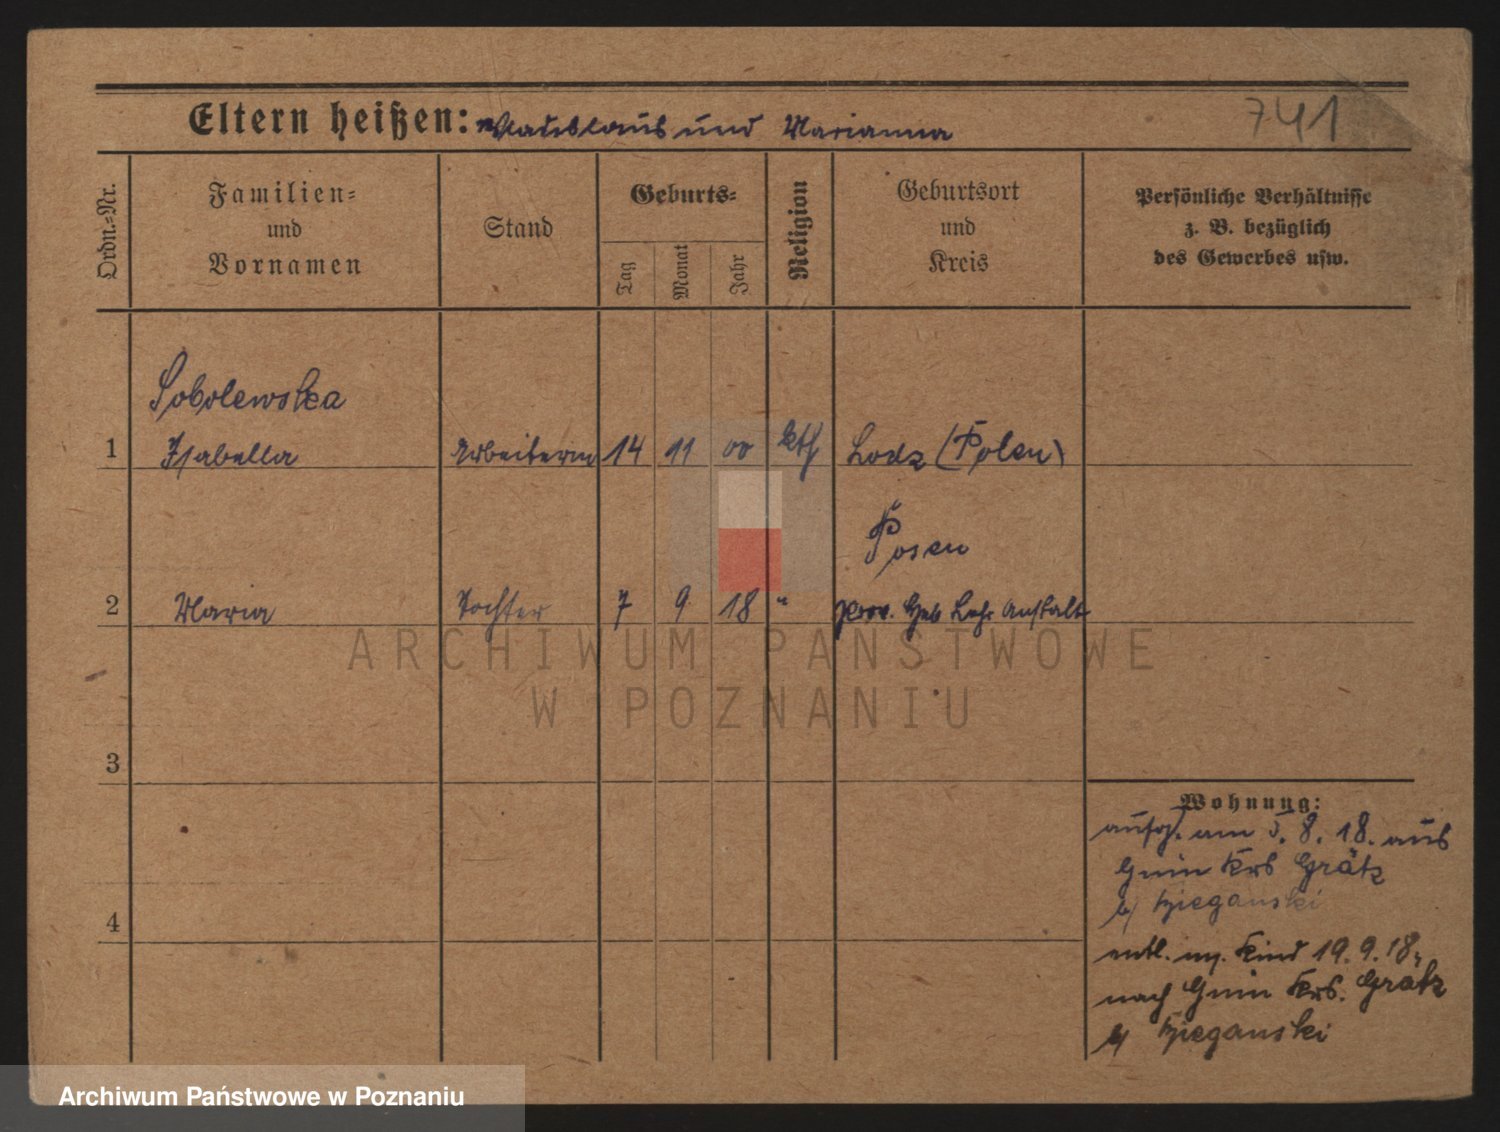 Eltern heißen: und Marianna
741
Ordn.-Nr.
Familien-
und
Vornamen
Stand
Geburts-
Tag
Monat
Jahr
Religion
Geburtsort
und
Kreis
Persönliche Verhältnisse
z. B. bezüglich
des Gewerbes usw.
Sobolewska
1 Isabella Arbeiterin 14 11 00 kth Lodz (Polen)
Posen
2 Maria Tochter 7 9 18 " Prov. Heb Lehr Anstalt
3
Wohnung:
aufg. am 5. 8. 18. aus
Gnin Krs Grätz
b/
4
entl. m. Kind 19. 9. 18.
nach Gnin Krs. Grätz
b/
ARCHIWUM PAŃSTWOWE
W POZNANIU
Archiwum Państwowe w Poznaniu